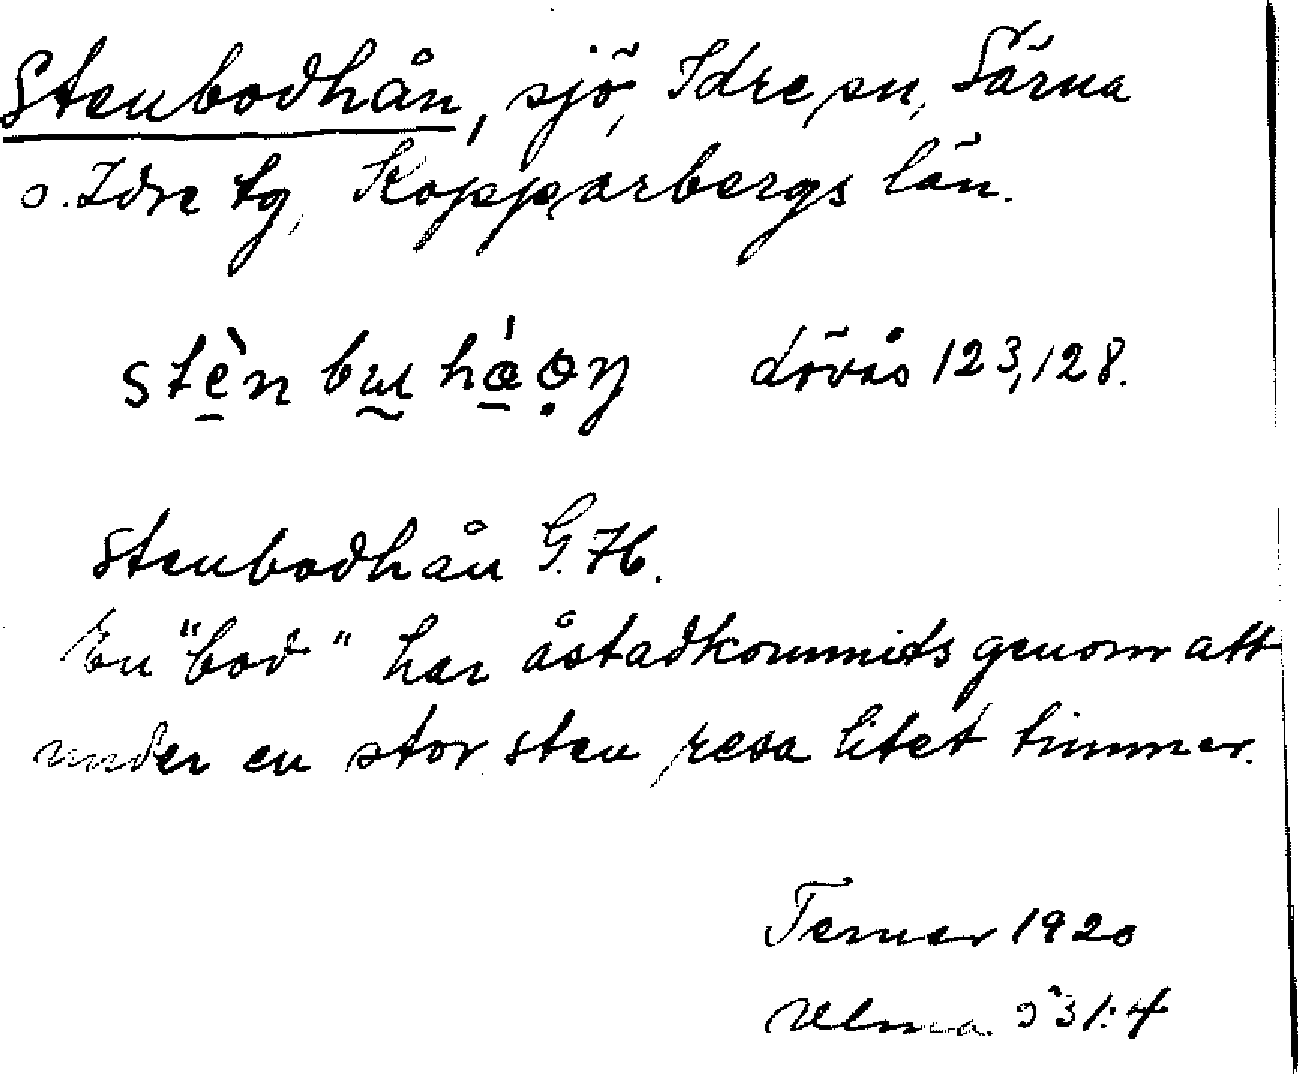 Stenbodhån, sjö, Idre sn, Särna
o. Idre tg, Kopparbergs län.
Lövås 123, 128.
Stenbodhån G. K.
En "bod" har åstadkommits genom att
under en stor sten resa litet timmer.
Terner 1920
Ulma 331:4